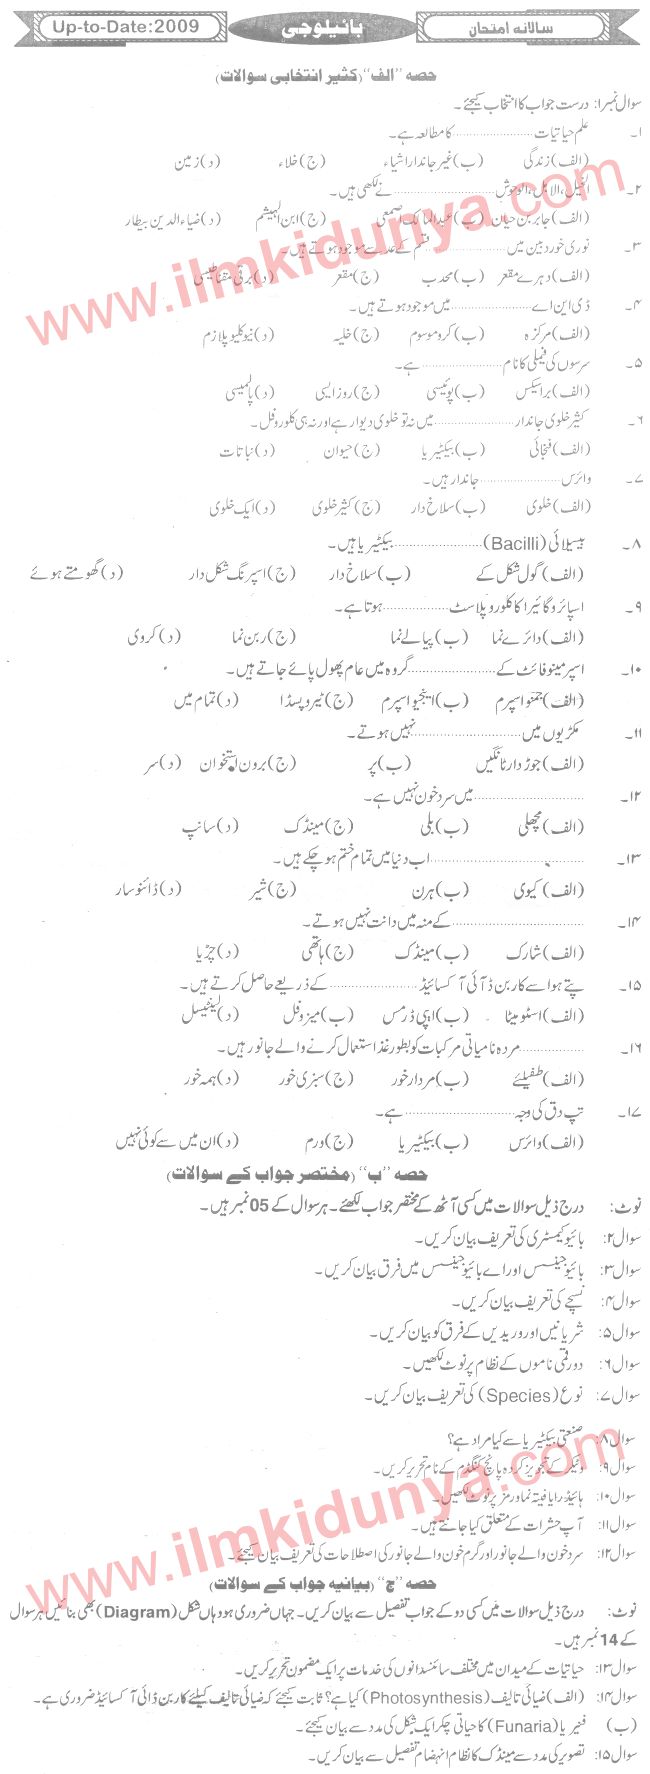 سالانہ امتحان
بائیلوجی
Up-to-Date:2009
حصہ "الف" (کثیر انتخابی سوالات)
سوال نمبر۱: درست جواب کا انتخاب کیجئے۔
۱۔ علم حیاتیات .......... کا مطالعہ ہے۔
(الف) زندگی (ب) غیر جاندار اشیاء (ج) خلاء (د) زمین
۲۔ الخیل، الابل، الوحوش .......... نے لکھی ہیں۔
(الف) جابر بن حیان (ب) عبدالمالک اصمعی (ج) ابن الہیشم (د) ضیاء الدین بیطار
۳۔ نوری خوردبین میں .......... قسم کے عدسے موجود ہوتے ہیں۔
(الف) دہرے مقعر (ب) محدب (ج) مقعر (د) برقی مقناطیسی
۴۔ ڈی این اے .......... میں موجود ہوتے ہیں۔
(الف) مرکزہ (ب) کروموسوم (ج) خلیہ (د) نیوکلیو پلازم
۵۔ سرسوں کی فیملی کا نام .......... ہے۔
(الف) براسیکس (ب) پوئیسی (ج) روزایسی (د) پالمیسی
۶۔ کثیر خلوی جاندار .......... میں نہ تو خلوی دیوار ہے اور نہ ہی کلوروفل۔
(الف) فنجائی (ب) بیکٹیریا (ج) حیوان (د) نباتات
۷۔ وائرس .......... جاندار ہیں۔
(الف) خلوی (ب) سلاخ دار (ج) کثیر خلوی (د) ایک خلوی
۸۔ بیسیلائی (Bacilli) .......... بیکٹیریا ہیں۔
(الف) گول شکل کے (ب) سلاخ دار (ج) اسپرنگ شکل دار (د) گھومتے ہوئے
۹۔ اسپائروگائیرا کا کلوروپلاسٹ .......... ہوتا ہے۔
(الف) دائرے نما (ب) پیالے نما (ج) ربن نما (د) کروی
۱۰۔ اسپرمیٹوفائٹ کے .......... گروہ میں عام پھول پائے جاتے ہیں۔
(الف) جمنواسپرم (ب) اینجیواسپرم (ج) ٹیروپسڈا (د) تمام میں
۱۱۔ مکڑیوں میں .......... نہیں ہوتے۔
(الف) جوڑ دار ٹانگیں (ب) پر (ج) برون استخوان (د) سر
۱۲۔ .......... میں سرد خون نہیں ہے۔
(الف) مچھلی (ب) بلی (ج) مینڈک (د) سانپ
۱۳۔ .......... اب دنیا میں تمام ختم ہو چکے ہیں۔
(الف) کیوی (ب) ہرن (ج) شیر (د) ڈائنوسار
۱۴۔ .......... کے منہ میں دانت نہیں ہوتے۔
(الف) شارک (ب) مینڈک (ج) ہاتھی (د) چڑیا
۱۵۔ پتے ہوا سے کاربن ڈائی آکسائیڈ .......... کے ذریعے حاصل کرتے ہیں۔
(الف) اسٹومیٹا (ب) اپی ڈرمس (ب) میزوفل (د) لینٹیسل
۱۶۔ .......... مردہ نامیاتی مرکبات کو بطور غذا استعمال کرنے والے جانور ہیں۔
(الف) طفیلئے (ب) مردار خور (ج) سبزی خور (د) ہمہ خور
۱۷۔ تپ دق کی وجہ .......... ہے۔
(الف) وائرس (ب) بیکٹیریا (ج) ورم (د) ان میں سے کوئی نہیں
حصہ "ب" (مختصر جواب کے سوالات)
نوٹ: درج ذیل سوالات میں کسی آٹھ کے مختصر جواب لکھئے۔ ہر سوال کے 05 نمبر ہیں۔
سوال ۲: بائیو کیمسٹری کی تعریف بیان کریں۔
سوال ۳: بائیو جینسس اور اے بائیو جینسس میں فرق بیان کریں۔
سوال ۴: نسیجے کی تعریف بیان کریں۔
سوال ۵: شریانیں اور وریدیں کے فرق کو بیان کریں۔
سوال ۶: دورقمی ناموں کے نظام پر نوٹ لکھیں۔
سوال ۷: نوع (Species) کی تعریف بیان کریں۔
سوال ۸: صنعتی بیکٹیریا سے کیا مراد ہے؟
سوال ۹: وٹیکر کے تجویز کردہ پانچ کنگڈم کے نام تحریر کریں۔
سوال ۱۰: ہائیڈرا یا فیتہ نما ورمز پر نوٹ لکھیں۔
سوال ۱۱: آپ حشرات کے متعلق کیا جانتے ہیں۔
سوال ۱۲: سرد خون والے جانور اور گرم خون والے جانور کی اصطلاحات کی تعریف بیان کیجئے۔
حصہ "ج" (بیانیہ جواب کے سوالات)
نوٹ: درج ذیل سوالات میں کسی دو کے جواب تفصیل سے بیان کریں۔ جہاں ضروری ہو وہاں شکل (Diagram) بھی بنائیں ہر سوال
کے 14 نمبر ہیں۔
سوال ۱۳: حیاتیات کے میدان میں مختلف سائنسدانوں کی خدمات پر ایک مضمون تحریر کریں۔
سوال ۱۴: (الف) ضیائی تالیف (Photosynthesis) کیا ہے؟ ثابت کیجئے کہ ضیائی تالیف کیلئے کاربن ڈائی آکسائیڈ ضروری ہے۔
(ب) فنیریا (Funaria) کا حیاتی چکر ایک شکل کی مدد سے بیان کیجئے۔
سوال ۱۵: تصویر کی مدد سے مینڈک کا نظام انہضام تفصیل سے بیان کریں۔
www.ilmkidunya.com
www.ilmkidunya.com